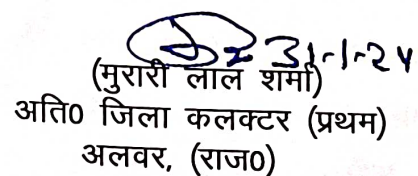 31-1-24
(मुरारी लाल शर्मा)
अति0 जिला कलक्टर (प्रथम)
अलवर, (राज0)